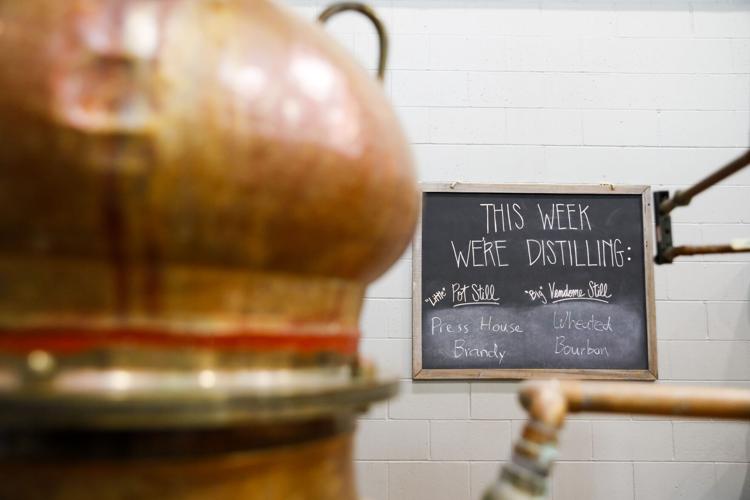 THIS WEEK
WE'RE DISTILLING:
"Little" Pot Still "Big" Vendome Still
Press House Wheated
Brandy Bourbon